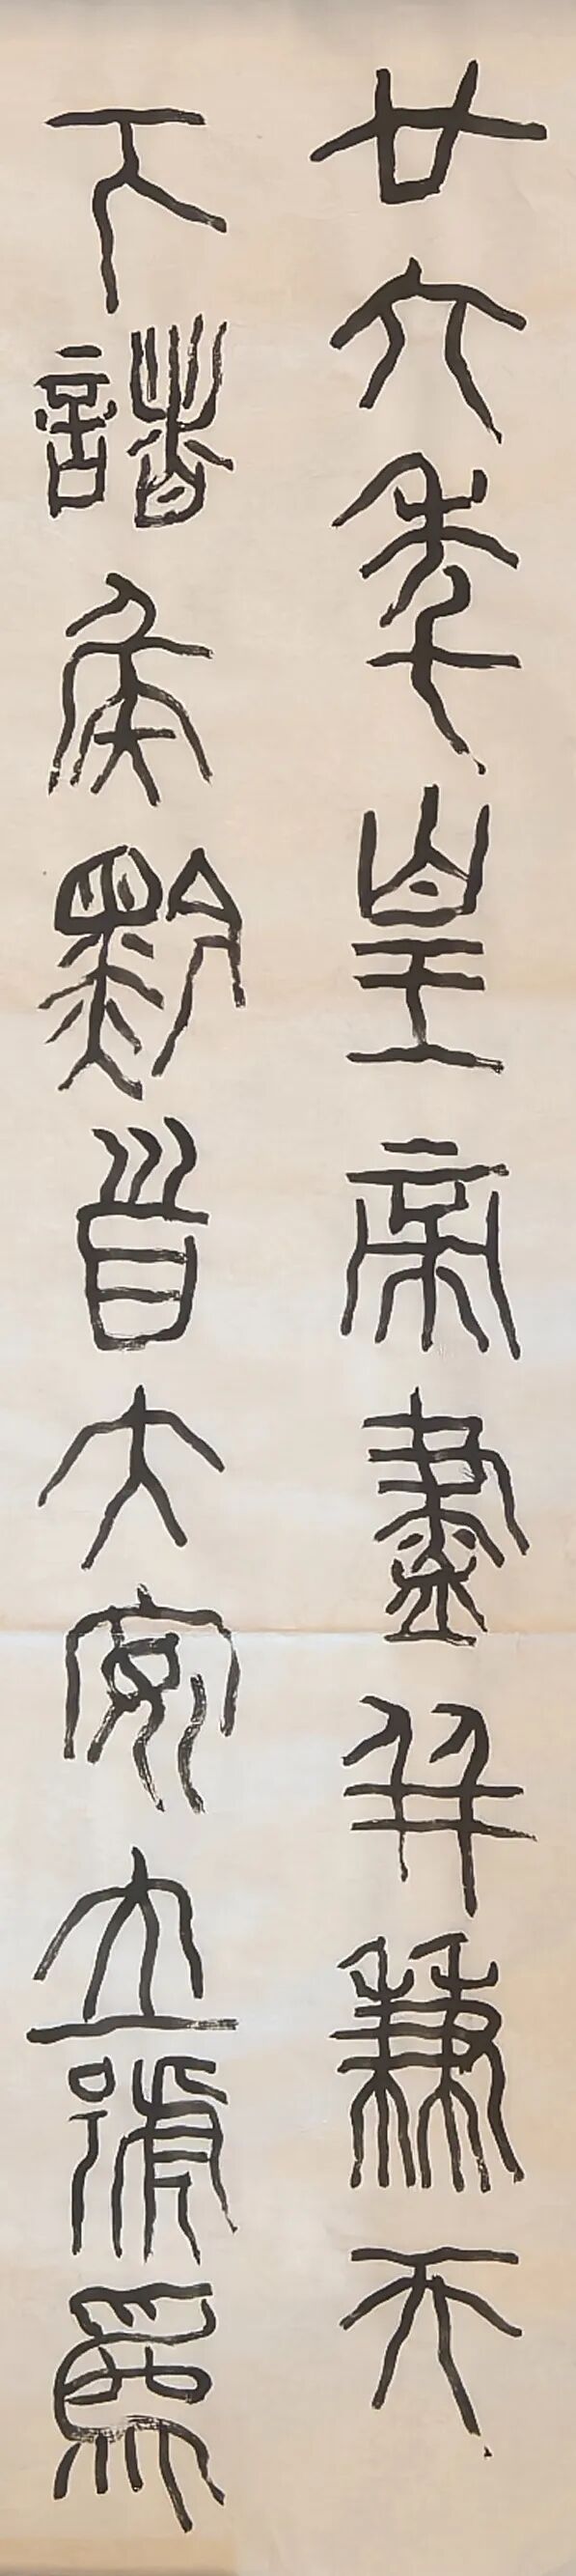 廿六年皇帝盡并兼天
下諸侯黔首大安立號為